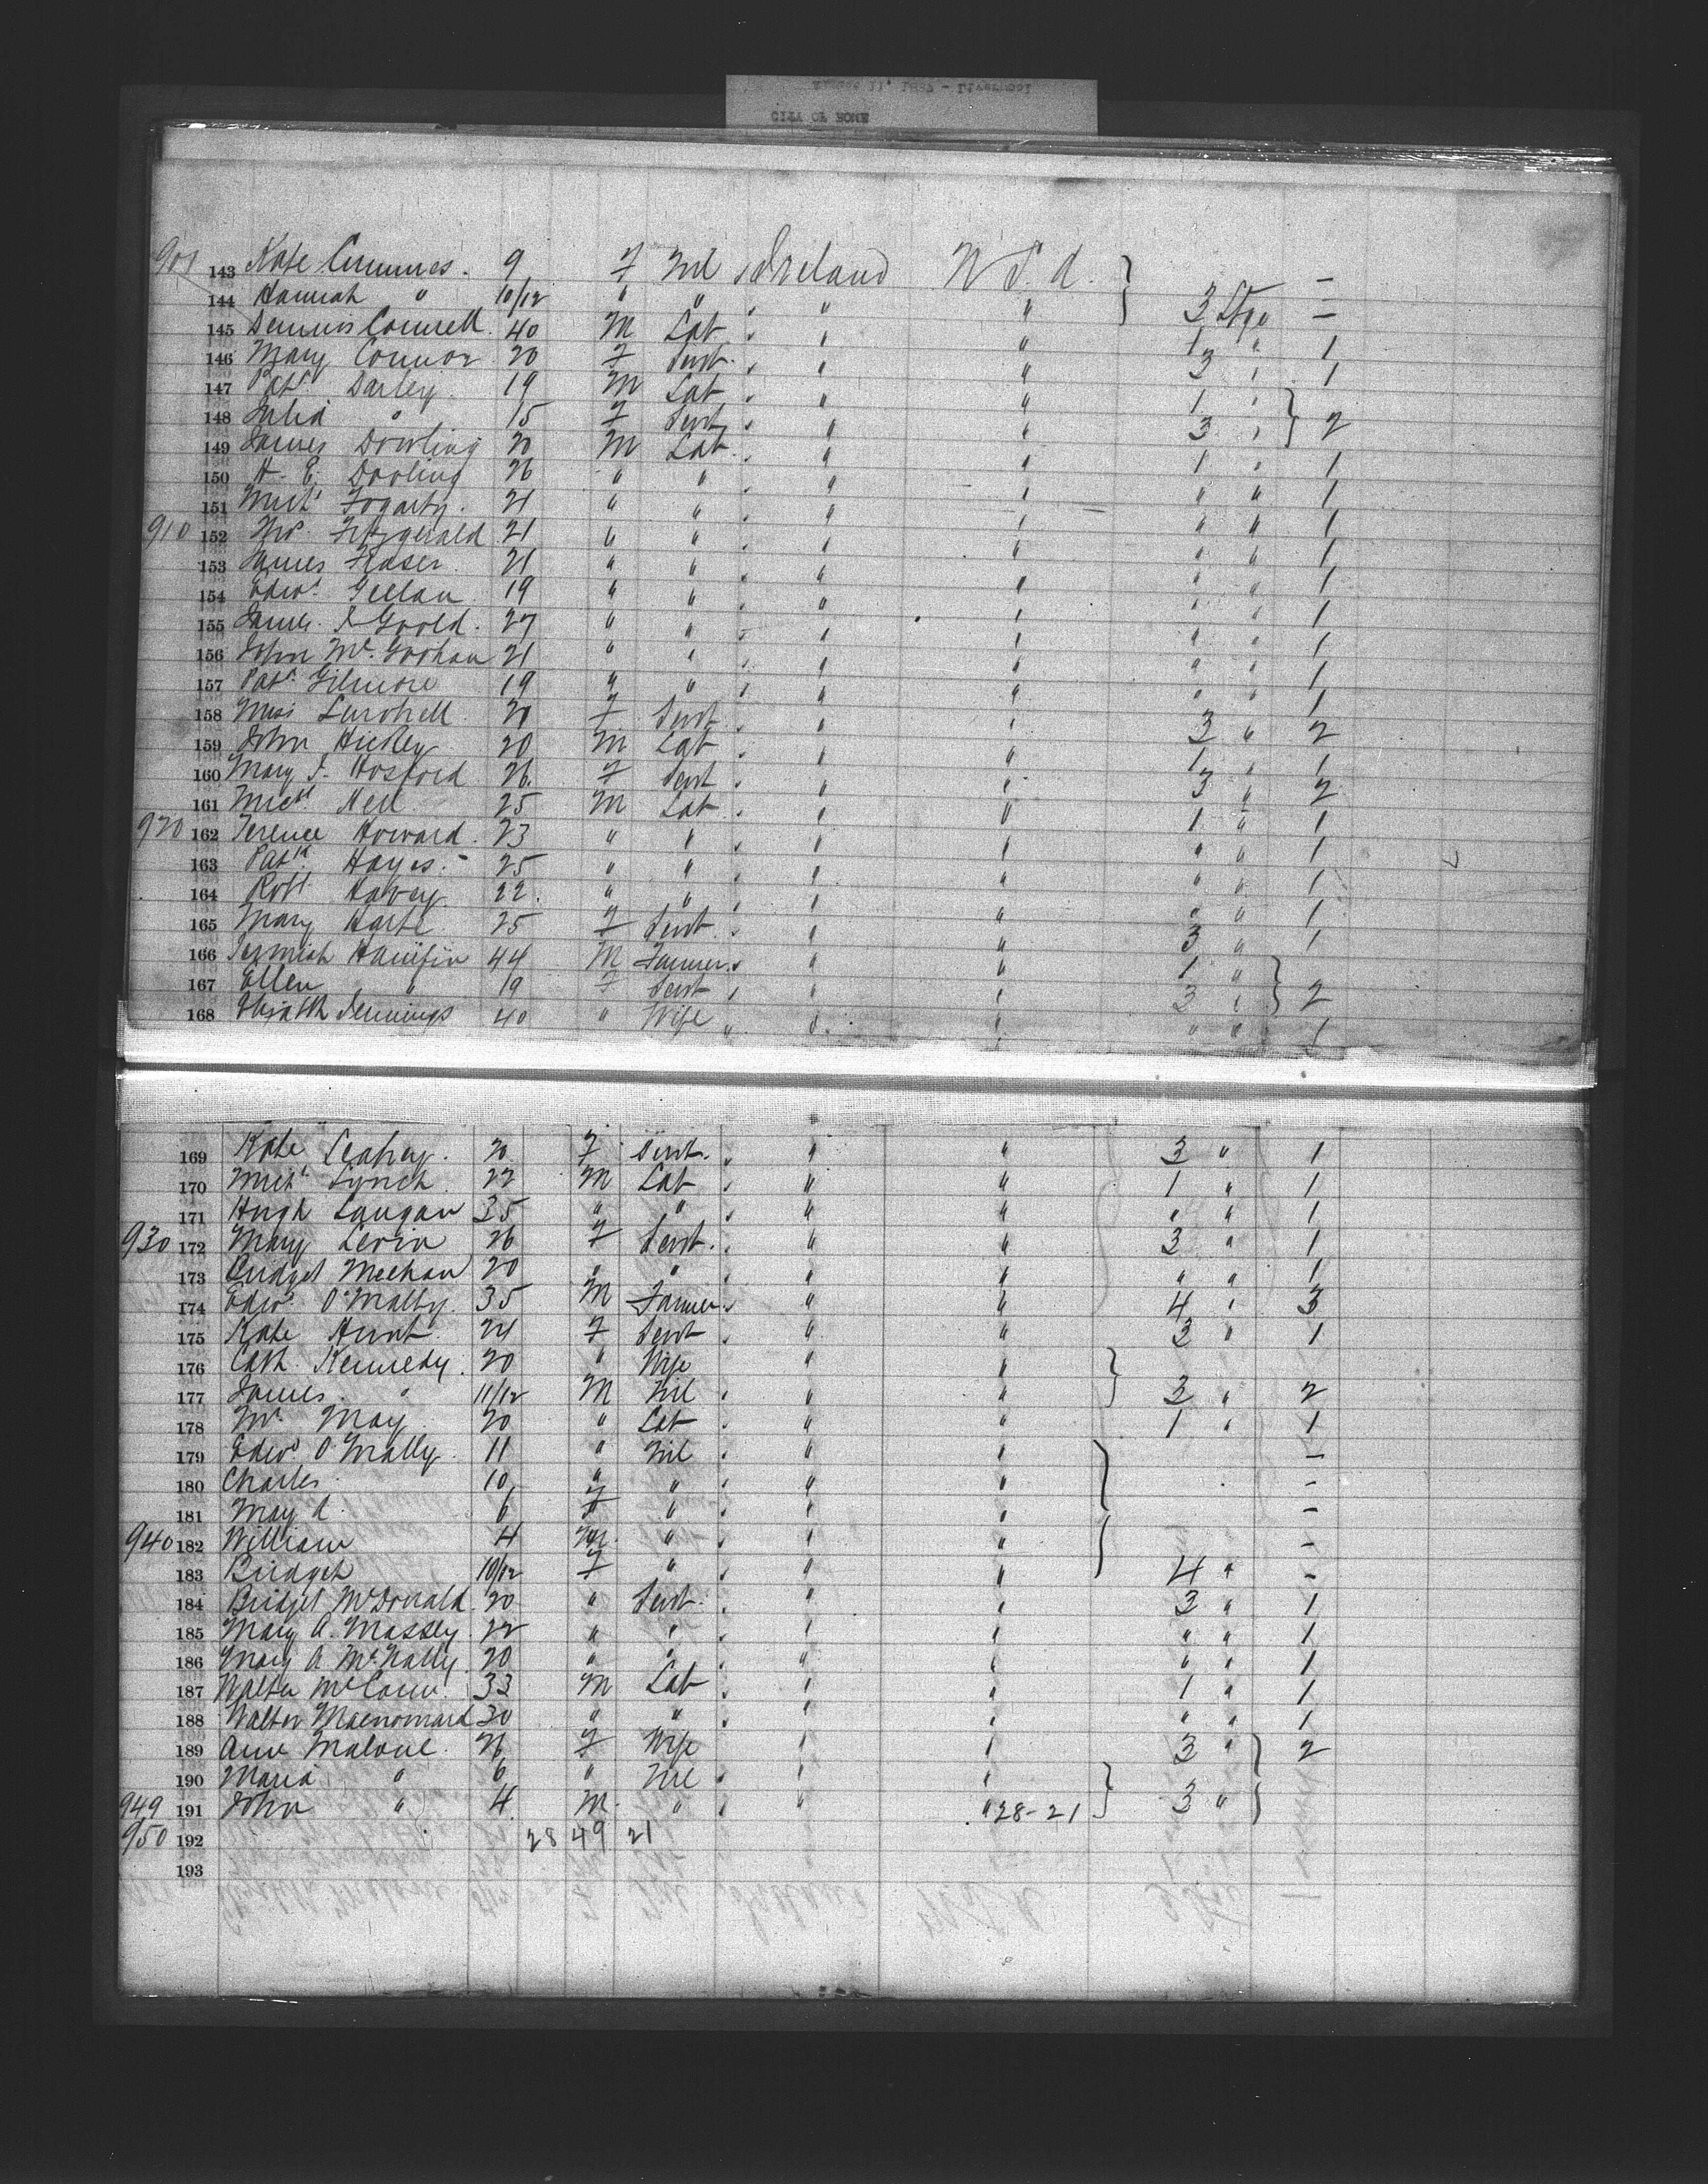 CITY OF ROME
901 143 Kate Cummes. 9 F Nil " Ireland U S. A. } –
144 Hannah " 10/12 " " " " " 3 Stge –
145 Dennis Connell. 40 M Lab " " " 1 " 1
146 Mary Connor 20 F Servt. " " " 3 " 1
147 Patk Darley. 19 M Lab " " " 1 " }
148 Julia " 15 F Servt " " " 3 " } 2
149 James Dowling 20 M Lab " " " 1 " 1
150 H. E. Dooling 26 " " " " " " " 1
151 Michl Fogarty. 21 " " " " " " " 1
910 152 Fitzgerald 21 " " " " " " " 1
153 James 21 " " " " " " " 1
154 Edwd. Gellan 19 " " " " " " " 1
155 James Goold. 27 " " " " " " " 1
156 John 21 " " " " " " " 1
157 Patk. Gilmore 19 " " " " " " " 1
158 Miss F Servt " " " 3 " 2
159 John Hickey 20 M Lab " " " 1 " 1
160 Mary J. Hosford 26. F Servt " " " 3 " 2
161 Michl. 25 M Lab " " " 1 " 1
920 162 Terence Howard. 23 " " " " " " " 1
163 Patk. Hayes. 25 " " " " " " " 1
164 Robt. Harvey. 22. " " " " " " " 1
165 Mary Harte 25 F Servt. " " " 3 " 1
166 Jermiah Hanifin 44 M Farmer " " " 1 " }
167 Ellen " 19 F Servt " " " 3 " } 2
168 Elizabth Jennings 40 " Wife " " " " " 1
169 Kate Leahey. 20 F Servt. " " " 3 " 1
170 Michl Lynch 22 M Lab " " " 1 " 1
171 Hugh Langan 35 " " " " " " " 1
930 172 Mary Levin 26 F Servt. " " " 3 " 1
173 Bridget Meehan 20 " " " " " " " 1
174 Edwd. O'Mally. 35 M Farmer " " " 4 " 3
175 Kate Hunt. 24 F Servt " " " 3 " 1
176 Cath. Kennedy. 20 " Wife " " }
177 James " 11/12 M Nil " " " } 3 " 2
178 May 20 " Lab " " " 1 " 1
179 Edwd O'Mally. 11 " Nil " " " } –
180 Charles 10 " " " " " –
181 May A. 6 F " " " " –
940 182 William 4 M. " " " " –
183 Bridget 10/12 F " " " " } 4 " –
184 Bridget McDonald. 20 " Servt. " " " 3 " 1
185 Mary A. Massey. 22 " " " " " " " 1
186 Mary A. McNally. 20 " " " " " " " 1
187 Walter McCann. 33 M Lab " " " 1 " 1
188 Walter 30 " " " " " " " 1
189 Ann Malone. 26 F Wife " " 3 " } 2
190 Maria " 6 " Nil " " " }
949 191 John " 4. M. " " " " 28-21 } 3 " }
950 192 28 49 21
193